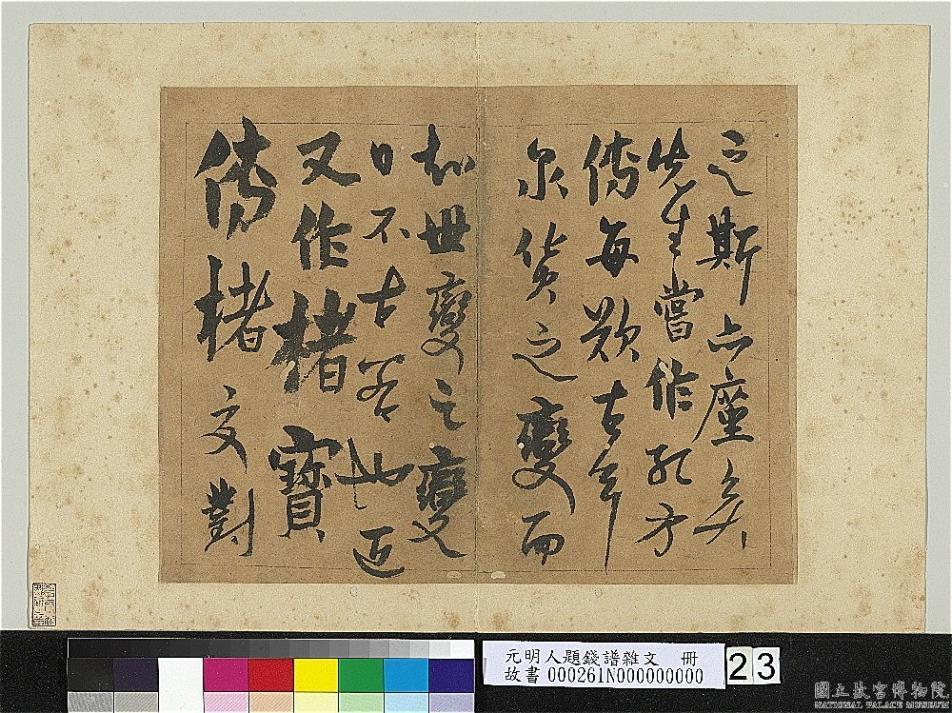 之斯座矣
先生嘗作孔方
傳每歎古今
泉貨之變而
知世變之變
日不古若也近
又作楮寶
傳楮文對
元明人題錢譜雜文 冊
故書 000261N000000000
23
國立故宮博物院
NATIONAL PALACE MUSEUM